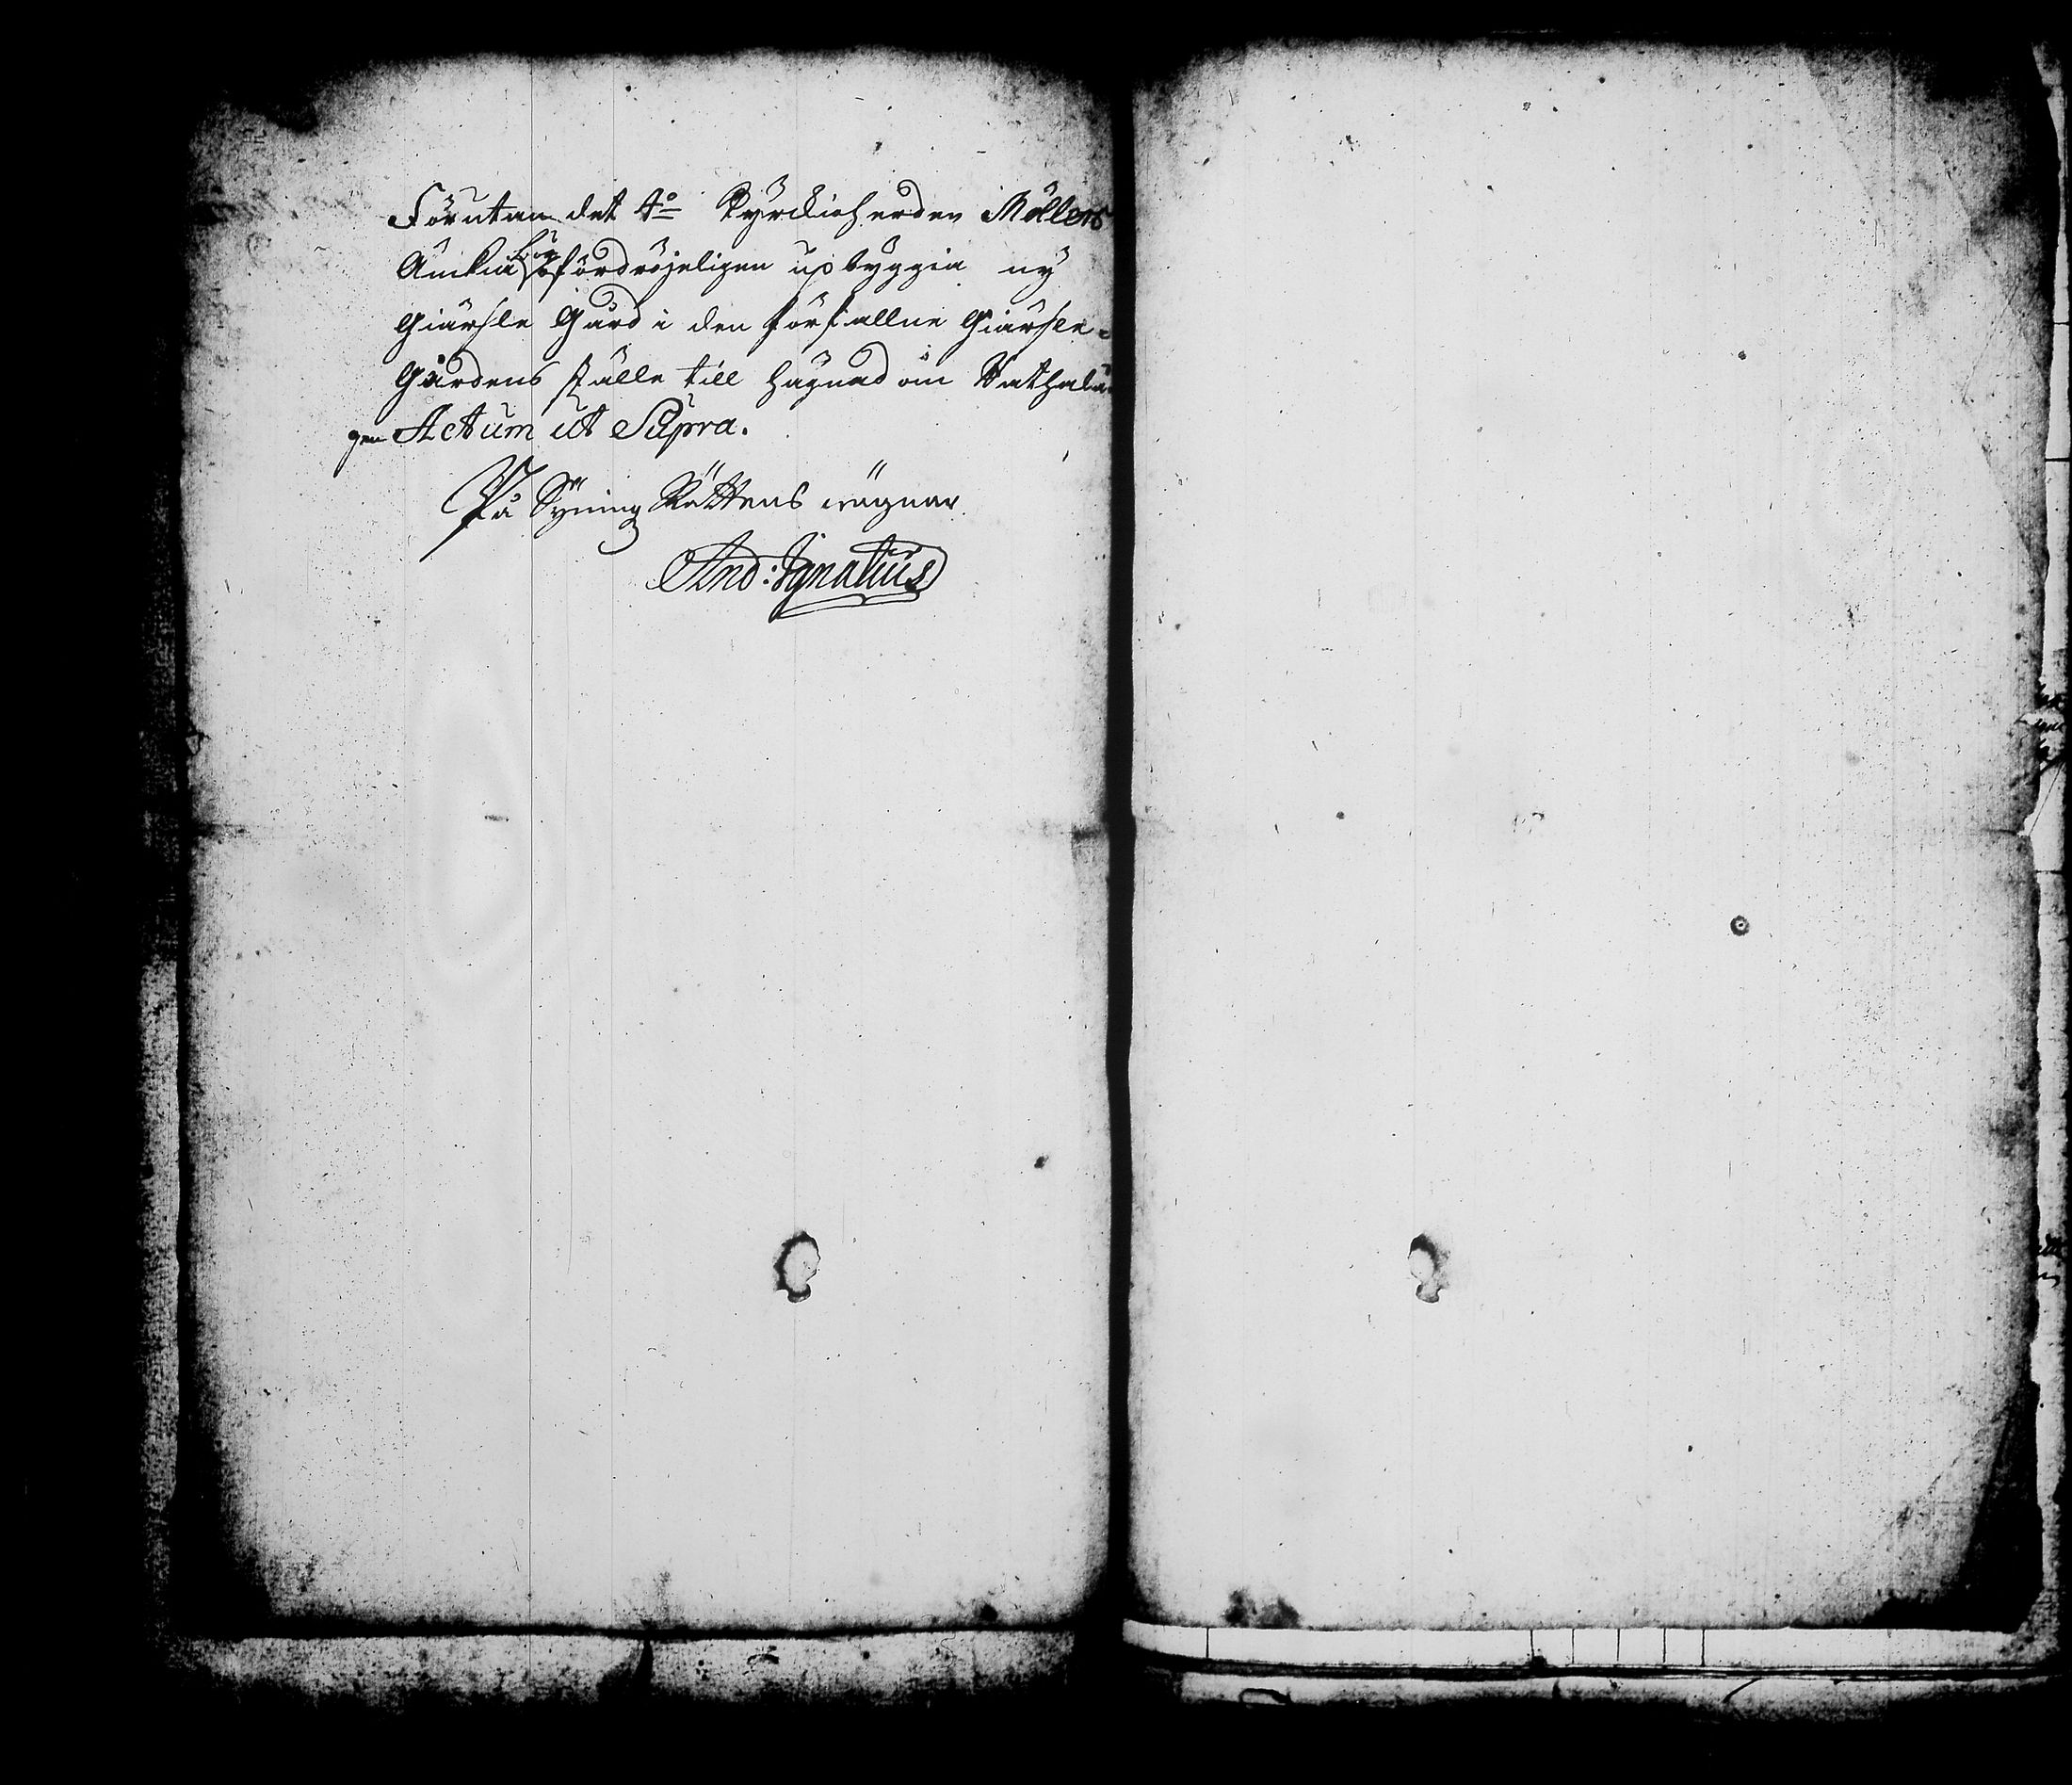 Förutan det 4º Kyrckioherden Möllers
Änkia bör ofördröjeligen upbyggia ny
Giärsle Gård i den förfallne Giärsle-
Gårdens ställe till hägnad om
gen Actum ut Supra.
På Syning Rättens wägnar
And: Ignatius